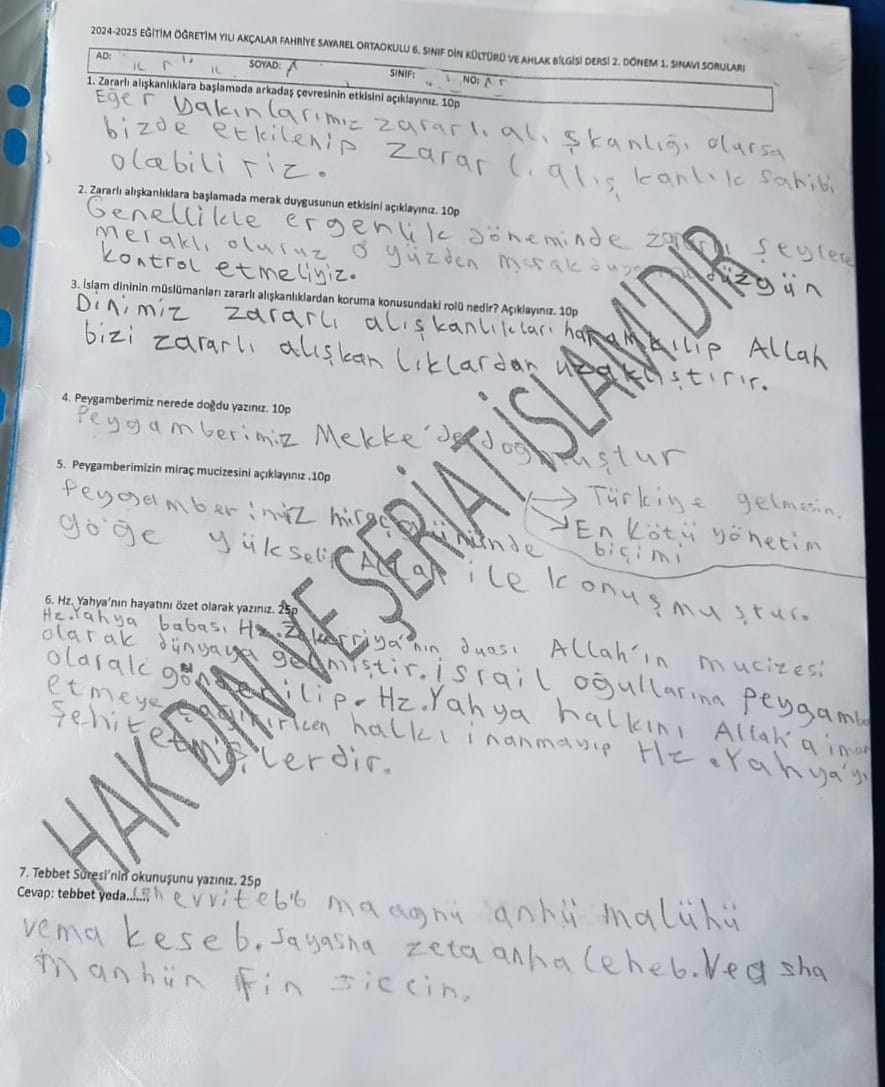 2024-2025 EĞİTİM ÖĞRETİM YILI AKÇALAR FAHRİYE SAYAREL ORTAOKULU 6. SINIF DİN KÜLTÜRÜ VE AHLAK BİLGİSİ DERSİ 2. DÖNEM 1. SINAVI SORULARI
AD: SOYAD: SINIF: NO:
1. Zararlı alışkanlıklara başlamada arkadaş çevresinin etkisini açıklayınız. 10p
Eğer yakınlarımız zararlı alışkanlığı olursa
bizde etkilenip zararlı alışkanlık sahibi
olabiliriz.
2. Zararlı alışkanlıklara başlamada merak duygusunun etkisini açıklayınız. 10p
Genellikle ergenlik döneminde zararlı şeylere
meraklı oluruz o yüzden merak düzgün
kontrol etmeliyiz.
3. İslam dininin müslümanları zararlı alışkanlıklardan koruma konusundaki rolü nedir? Açıklayınız. 10p
Dinimiz zararlı alışkanlıkları haram kılıp Allah
bizi zararlı alışkanlıklardan uzaklıştırır.
4. Peygamberimiz nerede doğdu yazınız. 10p
Peygamberimiz Mekke'de doğmuştur
5. Peygamberimizin miraç mucizesini açıklayınız .10p
Peygamberimiz miraç gününde
göğe yükselip Allah ile konuşmuştur.
→ Türkiye gelmesin.
→ En kötü yönetim
biçimi
6. Hz. Yahya'nın hayatını özet olarak yazınız. 25p
Hz. Yahya babası Hz. Zekeriya'nın duası Allah'ın mucizesi
olarak dünyaya gelmiştir. İsrail oğullarına peygamber
olarak gönderilip. Hz. Yahya halkını Allah'a iman
etmeye çağırırken halkı inanmayıp Hz. Yahya'yı
şehit etmişlerdir.
HAK DİN VE ŞERİAT İSLAM'DIR
7. Tebbet Sûresi'nin okunuşunu yazınız. 25p
Cevap: tebbet yeda....... maagnü anhü malühü
vema keseb. Sayasha zeta anha leheb. Ve
manhün fin siccin.